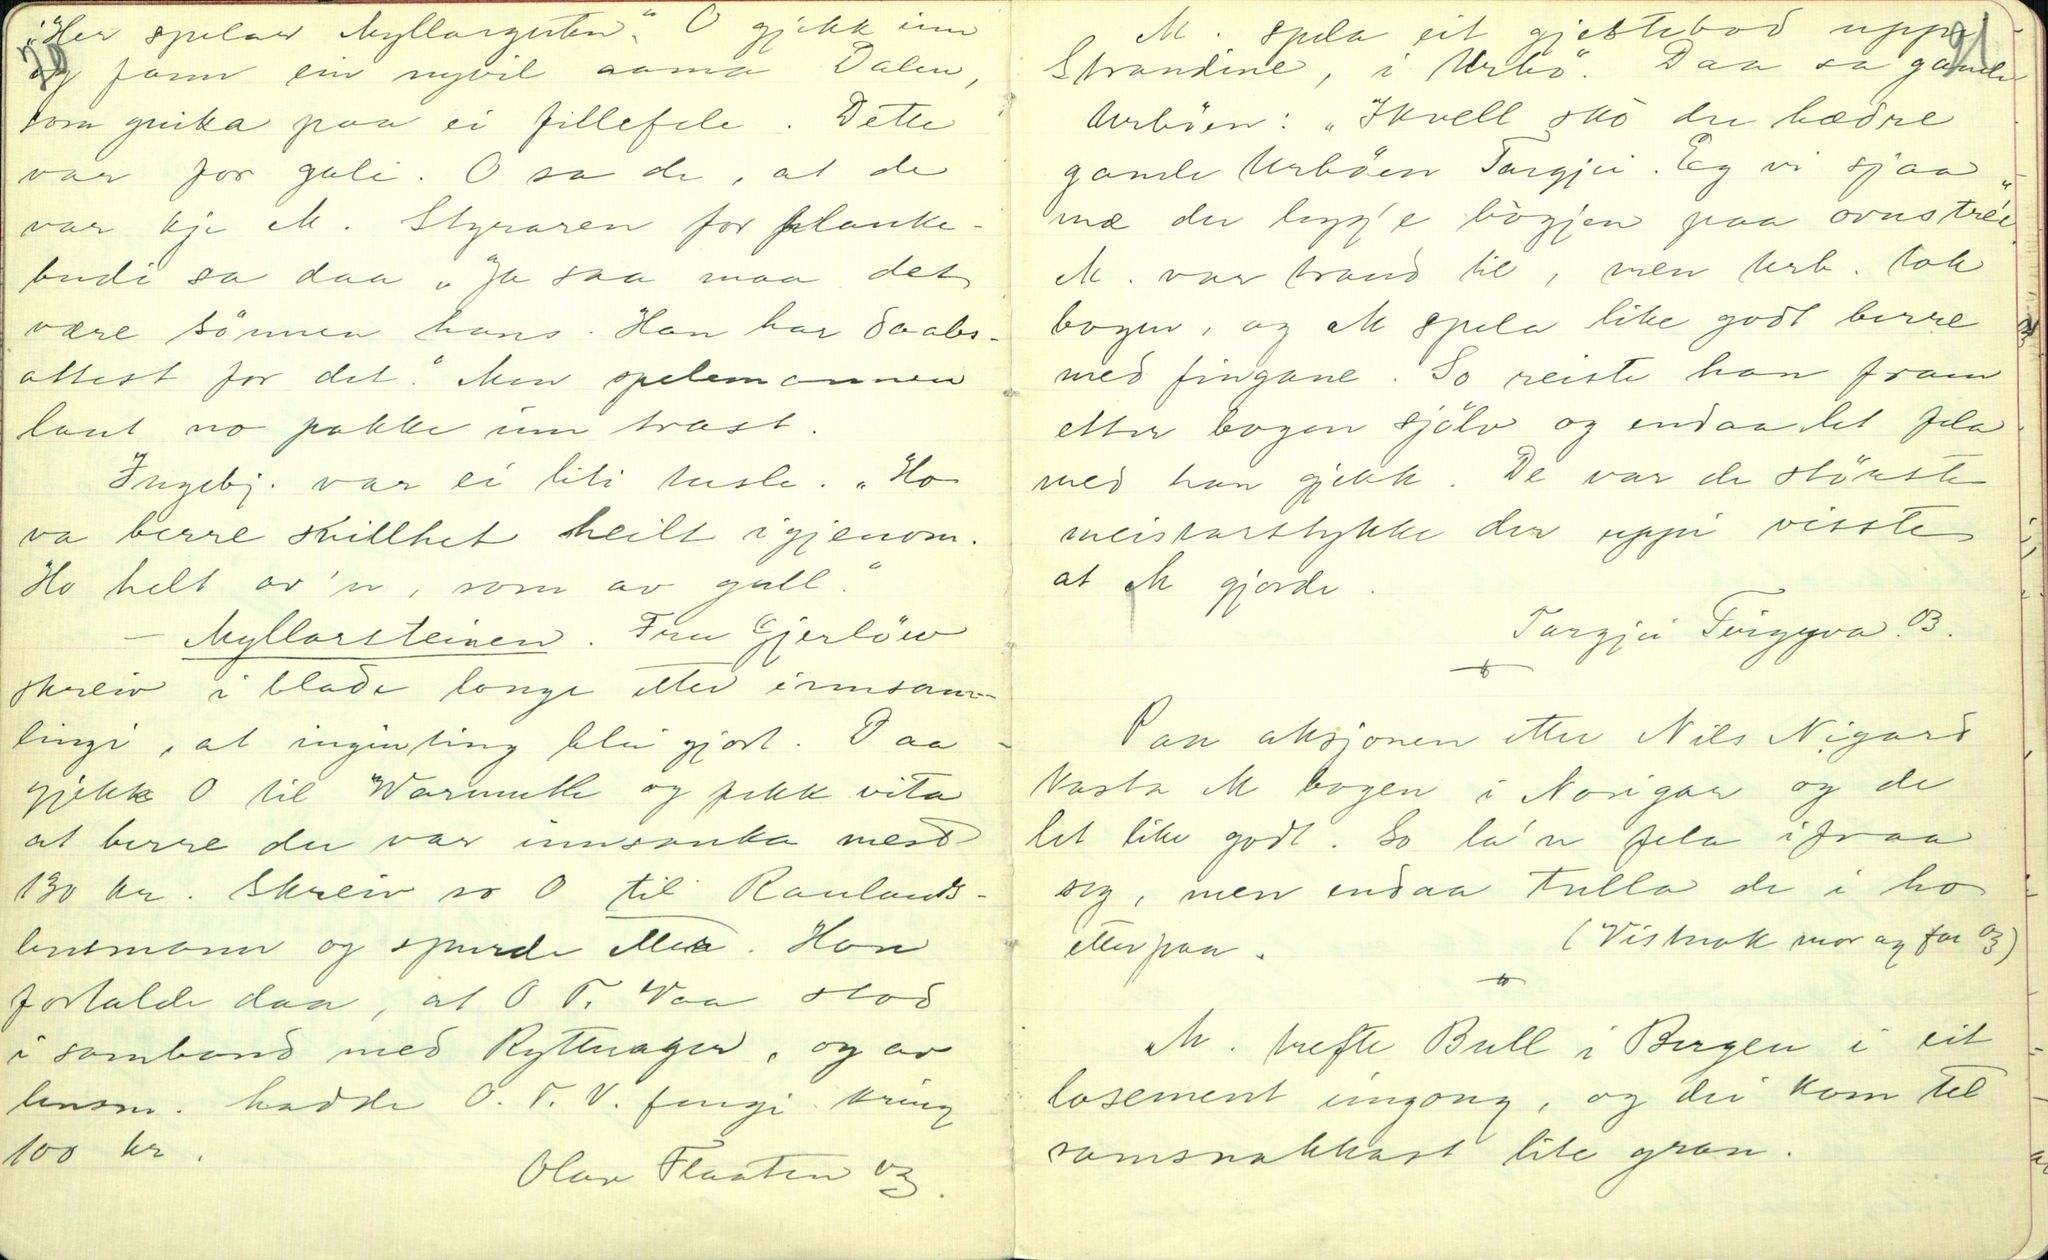 "Her spelar Myllarguten." O gjekk inn
20
og fann ein nyvil aama Dalen,
som gnika paa ei fillefele. Dette
var for gali. O sa de, at de
var kje M. Styraren for planke-
budi sa daa "Ja saa maa det
være sönnen hans. Han har daabs-
attest for det." Men spelemannen
laut no pakke inn trast.
Ingebj. var ei liti tusle. "Ho
va berre skillhet heilt igjenom.
Ho helt av'n, som av gull."
– Myllarsteinen. Fru Gjerlöw
skreiv i blade lenge etter innsam-
lingi, at ingenting blei gjort. Daa
gjekk O til Warmuth og fekk vita
at berre der var innsanka med
130 kr. Skreiv so O til Raulands-
lensmann og spurde etter. Han
fortalde daa, at O T. Vaa stod
i samband med Rytterager, og av
lensm. hadde O. T. V. fengi kring
100 kr.
Olav Flaaten 03.
21
M. spela eit gjestebod uppi
Strandine, i Urbö. Daa sa gamle
Urböen: "Ikvell sko du hædre
gamle Urböen Targjei. Eg vi sjaa
mæ du legg'e bògjen paa ovnstrée"
M. var traud til, men Urb. tok
bogen, og M spela like godt berre
med fingane. So reiste han fram
etter bogen sjölv og endaa let fela
med han gjekk. De var de störste
meistarstykke der uppi visste
at M gjorde.
Targjei Feigyva. 03.
Paa aksjonen etter Nils Nigard
kasta M bogen i Norigar og de
let like godt. So la'n fela ifraa
seg, men endaa tulla de i ho
etterpaa. (Vistnok mor og far 03)
M. trefte Bull i Bergen i eit
losement eingong, og dei kom til
samsnakkast lite gran.